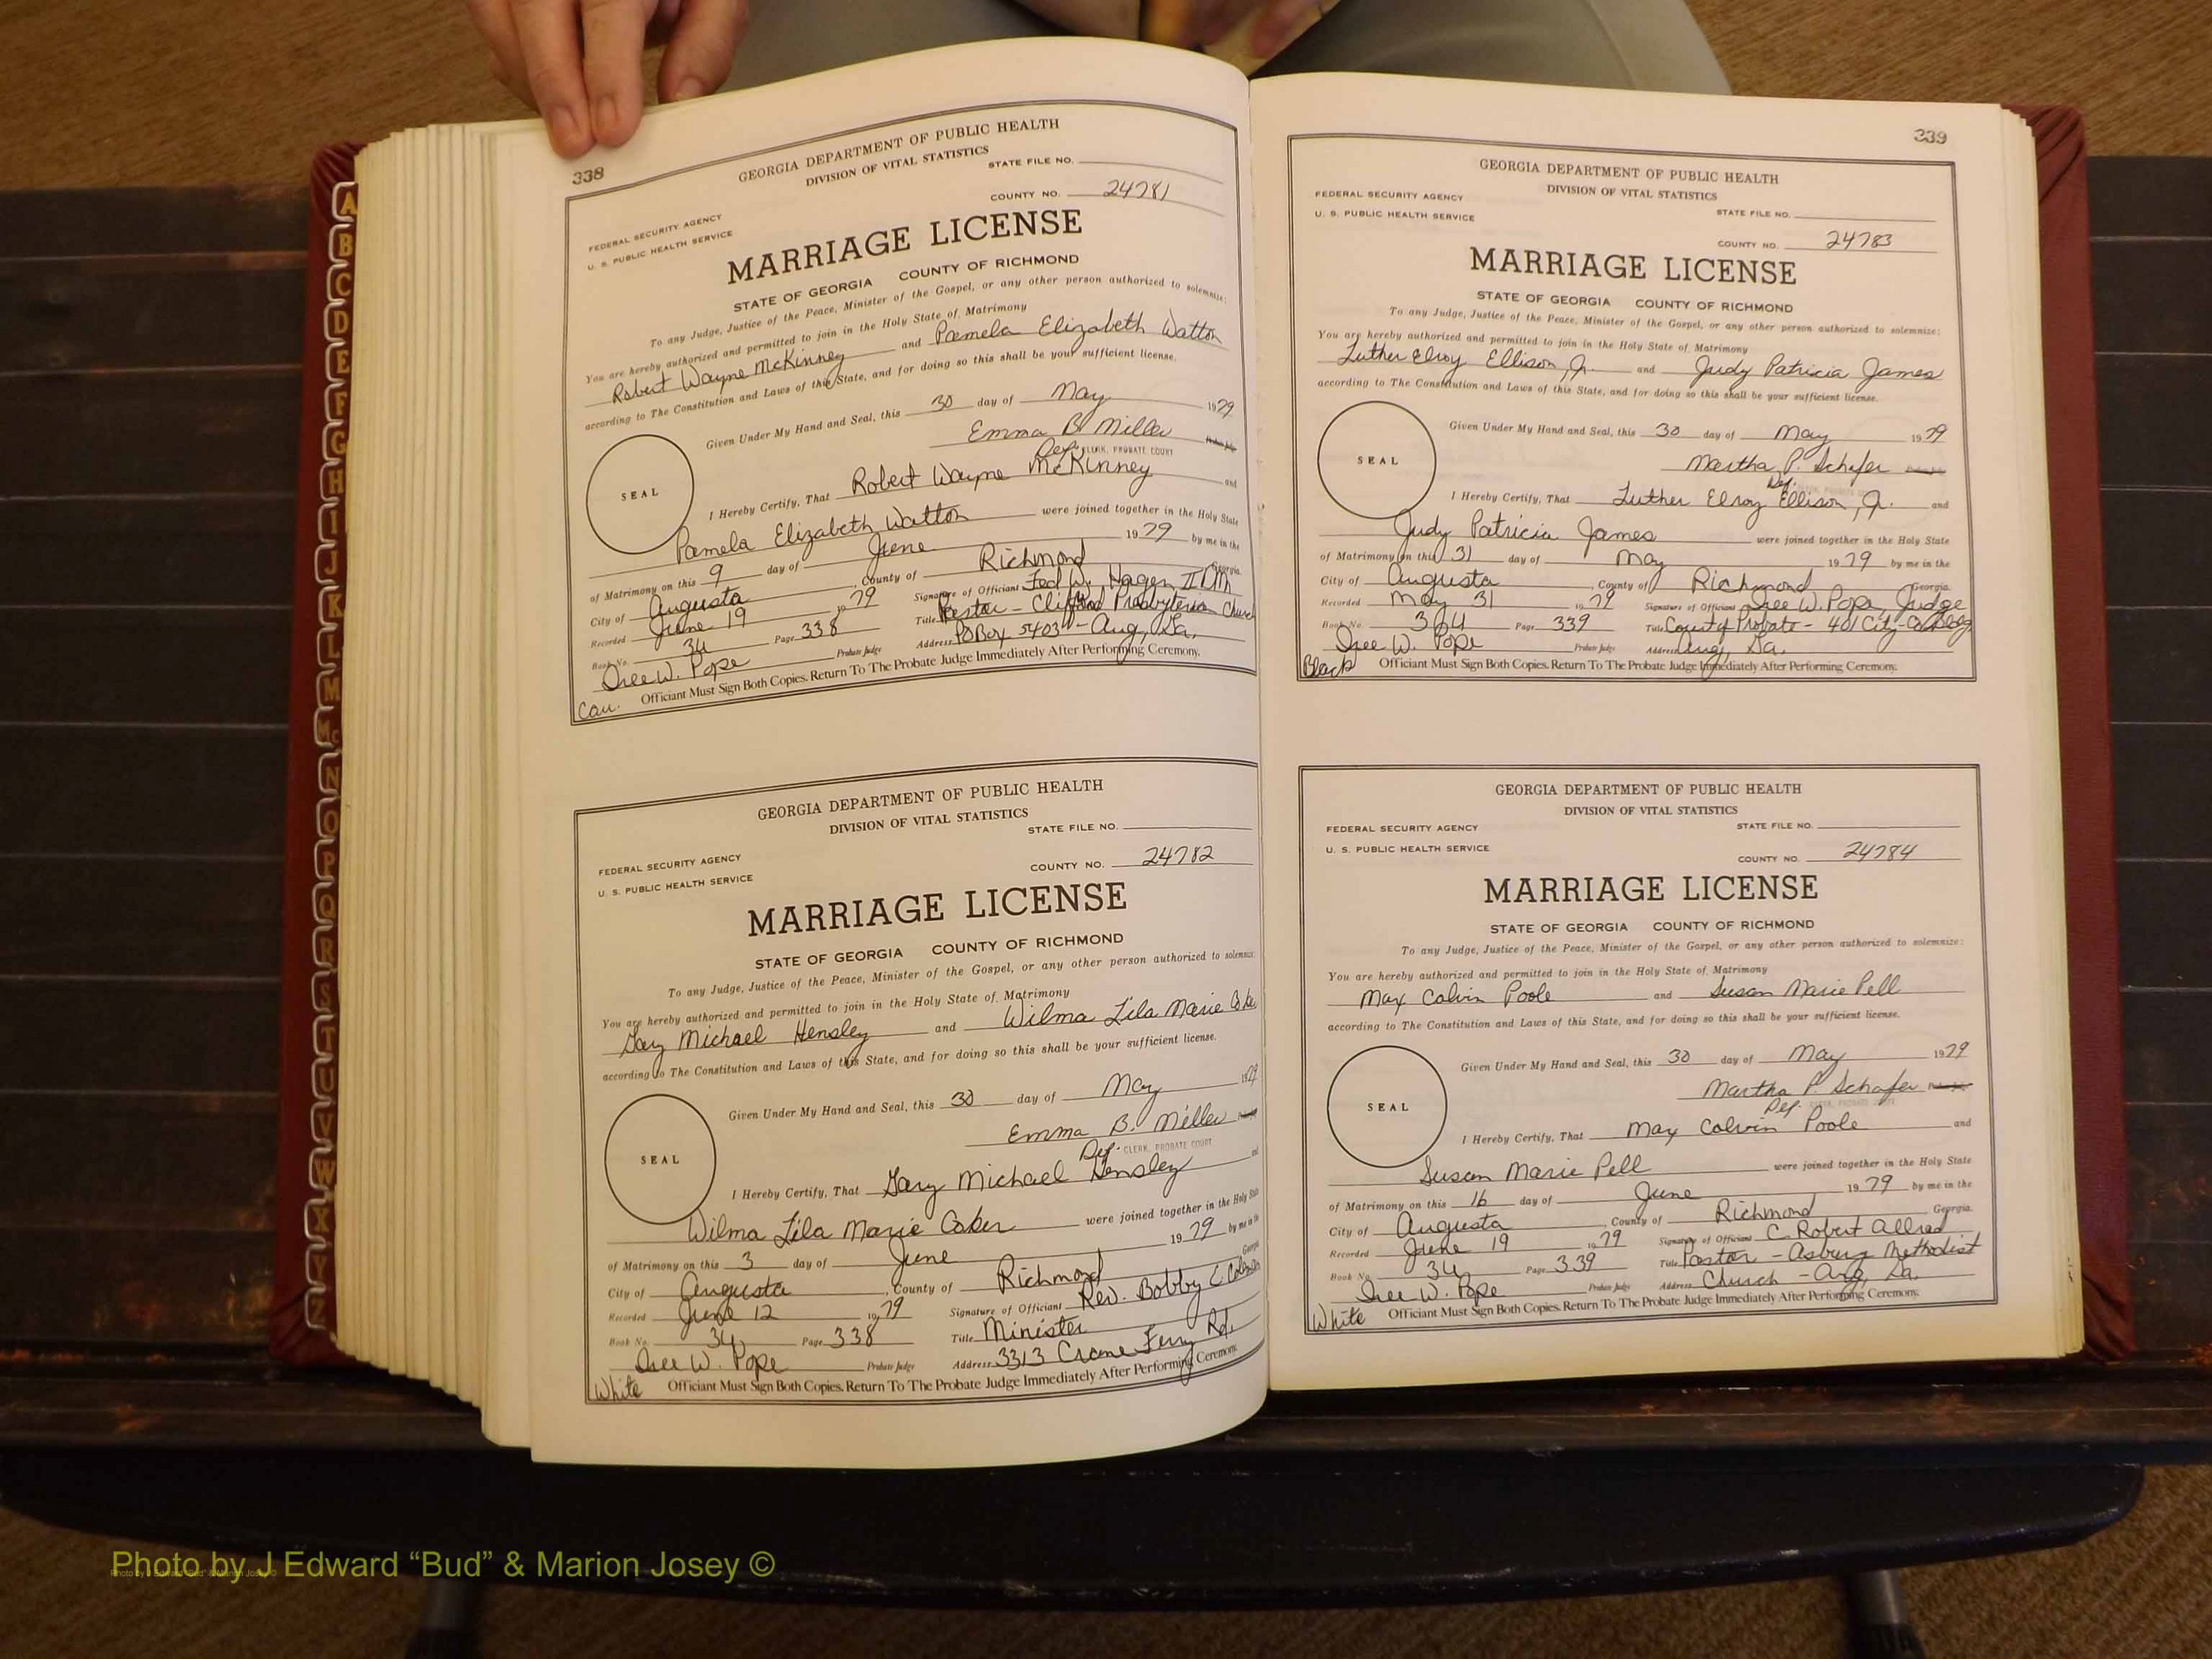 338
GEORGIA DEPARTMENT OF PUBLIC HEALTH
DIVISION OF VITAL STATISTICS
STATE FILE NO.
COUNTY NO. 24781
FEDERAL SECURITY AGENCY
U. S. PUBLIC HEALTH SERVICE
MARRIAGE LICENSE
STATE OF GEORGIA COUNTY OF RICHMOND
To any Judge, Justice of the Peace, Minister of the Gospel, or any other person authorized to solemnize:
You are hereby authorized and permitted to join in the Holy State of Matrimony
Robert Wayne McKinney and Pamela Elizabeth Watton
according to The Constitution and Laws of this State, and for doing so this shall be your sufficient license.
Given Under My Hand and Seal, this 30 day of May 1979
Emma B. Miller
Dep. CLERK, PROBATE COURT
SEAL
I Hereby Certify, That Robert Wayne McKinney and
Pamela Elizabeth Watton were joined together in the Holy State
of Matrimony on this 9 day of June 1979 by me in the
City of Augusta, County of Richmond Georgia.
Recorded June 19 1979 Signature of Officiant W. Hagen II
Book No. 34 Page 338 Title Pastor - Presbyterian Church
Dree W. Pope Probate Judge Address PO Box 5403 - Aug, Ga.
Officiant Must Sign Both Copies. Return To The Probate Judge Immediately After Performing Ceremony.
Cau.
GEORGIA DEPARTMENT OF PUBLIC HEALTH
DIVISION OF VITAL STATISTICS
STATE FILE NO.
FEDERAL SECURITY AGENCY
COUNTY NO. 24782
U. S. PUBLIC HEALTH SERVICE
MARRIAGE LICENSE
STATE OF GEORGIA COUNTY OF RICHMOND
To any Judge, Justice of the Peace, Minister of the Gospel, or any other person authorized to solemnize:
You are hereby authorized and permitted to join in the Holy State of Matrimony
Gary Michael Hensley and Wilma Lila Marie Coker
according to The Constitution and Laws of this State, and for doing so this shall be your sufficient license.
Given Under My Hand and Seal, this 30 day of May 1979
Emma B. Miller
Dep. CLERK, PROBATE COURT
SEAL
I Hereby Certify, That Gary Michael Hensley and
Wilma Lila Marie Coker were joined together in the Holy State
of Matrimony on this 3 day of June 1979 by me in the
City of Augusta, County of Richmond Georgia
Recorded June 12 1979 Signature of Officiant Rev. Bobby C.
Book No. 34 Page 338 Title Minister
Dree W. Pope Probate Judge Address 3313 Crane Ferry Rd.
White Officiant Must Sign Both Copies. Return To The Probate Judge Immediately After Performing Ceremony.
339
GEORGIA DEPARTMENT OF PUBLIC HEALTH
DIVISION OF VITAL STATISTICS
FEDERAL SECURITY AGENCY
U. S. PUBLIC HEALTH SERVICE
STATE FILE NO.
COUNTY NO. 24783
MARRIAGE LICENSE
STATE OF GEORGIA COUNTY OF RICHMOND
To any Judge, Justice of the Peace, Minister of the Gospel, or any other person authorized to solemnize:
You are hereby authorized and permitted to join in the Holy State of Matrimony
Luther Elroy Ellison, Jr. and Judy Patricia James
according to The Constitution and Laws of this State, and for doing so this shall be your sufficient license.
Given Under My Hand and Seal, this 30 day of May 1979
Martha P. Schafer
Dep. CLERK, PROBATE COURT
SEAL
I Hereby Certify, That Luther Elroy Ellison, Jr. and
Judy Patricia James were joined together in the Holy State
of Matrimony on this 31 day of May 1979 by me in the
City of Augusta, County of Richmond Georgia.
Recorded May 31 1979 Signature of Officiant Dree W. Pope, Judge
Book No. 34 Page 339 Title Court of Probate - 401 City-Co Bldg
Dree W. Pope Probate Judge Address Aug, Ga.
Black Officiant Must Sign Both Copies. Return To The Probate Judge Immediately After Performing Ceremony.
GEORGIA DEPARTMENT OF PUBLIC HEALTH
DIVISION OF VITAL STATISTICS
FEDERAL SECURITY AGENCY STATE FILE NO.
U. S. PUBLIC HEALTH SERVICE
COUNTY NO. 24784
MARRIAGE LICENSE
STATE OF GEORGIA COUNTY OF RICHMOND
To any Judge, Justice of the Peace, Minister of the Gospel, or any other person authorized to solemnize:
You are hereby authorized and permitted to join in the Holy State of Matrimony
Max Calvin Poole and Susan Marie Pell
according to The Constitution and Laws of this State, and for doing so this shall be your sufficient license.
Given Under My Hand and Seal, this 30 day of May 1979
Martha P. Schafer
Dep. CLERK, PROBATE COURT
SEAL
I Hereby Certify, That Max Calvin Poole and
Susan Marie Pell were joined together in the Holy State
of Matrimony on this 16 day of June 1979 by me in the
City of Augusta, County of Richmond Georgia.
Recorded June 19 1979 Signature of Officiant C. Robert Allred
Book No. 34 Page 339 Title Pastor - Asbury Methodist
Dree W. Pope Probate Judge Address Church - Aug, Ga.
White Officiant Must Sign Both Copies. Return To The Probate Judge Immediately After Performing Ceremony.
A
B
C
D
E
F
G
H
I
J
K
L
M
Mc
N
O
P
Q
R
S
T
U
V
W
X
Y
Z
Photo by J Edward “Bud” & Marion Josey ©
Photo by J Edward "Bud" & Marion Josey ©